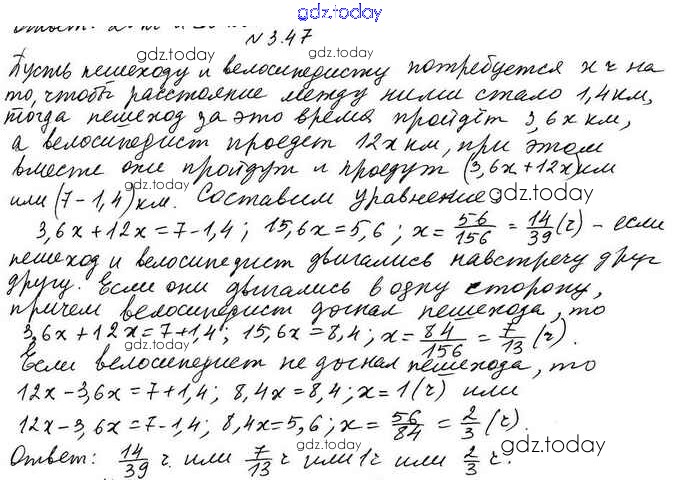 gdz.today
Ответ: 
gdz.today
N 3.47
Пусть пешеходу и велосипедисту потребуется x ч на
то, чтобы расстояние между ними стало 1,4 км,
тогда пешеход за это время пройдёт 3,6x км,
а велосипедист проедет 12x км, при этом
вместе они пройдут и проедут (3,6x+12x) км
или (7-1,4) км. Составим уравнение:
3,6x+12x=7-1,4; 15,6x=5,6; x=56/156=14/39(ч) - если
пешеход и велосипедист двигались навстречу друг
другу. Если они двигались в одну сторону,
причем велосипедист догнал пешехода, то
3,6x+12x=7+1,4; 15,6x=8,4; x=84/156=7/13 (ч).
Если велосипедист не догнал пешехода, то
12x-3,6x=7+1,4; 8,4x=8,4; x=1(ч) или
12x-3,6x=7-1,4; 8,4x=5,6; x=56/84=2/3(ч).
Ответ: 14/39 ч. или 7/13 ч или 1ч или 2/3 ч.
gdz.today